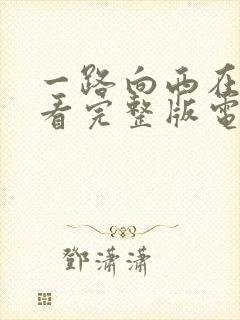 一路向西在
看完整版電
鄧瀟瀟